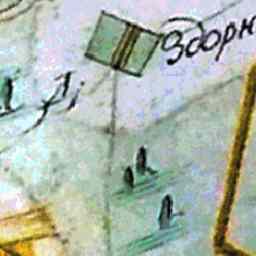 Здорн